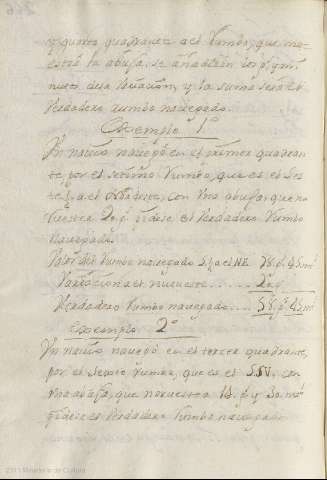 y quarto quadrante del rumbo, que mo
estra la abuja, se añadirán los gr. y mi
nutos de la Variacion, y la suma será el
verdadero rumbo navegado.
Exemplo 1º
Un navio navegó en el primer quadran
te, por el septimo rumbo, que es el
con una abuja que no
ruestea 20 g. pidese el verdadero rumbo
navegado.
Valor del rumbo navegado 78 g. 45 mº
Variacion al nurueste
Verdadero rumbo navegado 58 g. 45 mº
Exemplo 2º
Un navio, navegó en el tercer quadrante,
por el rumbo, que es el SSW. con
una abuja, que noruestea y 30. mº
pidese el verdadero rumbo navegado
2011 Ministerio de Cultura